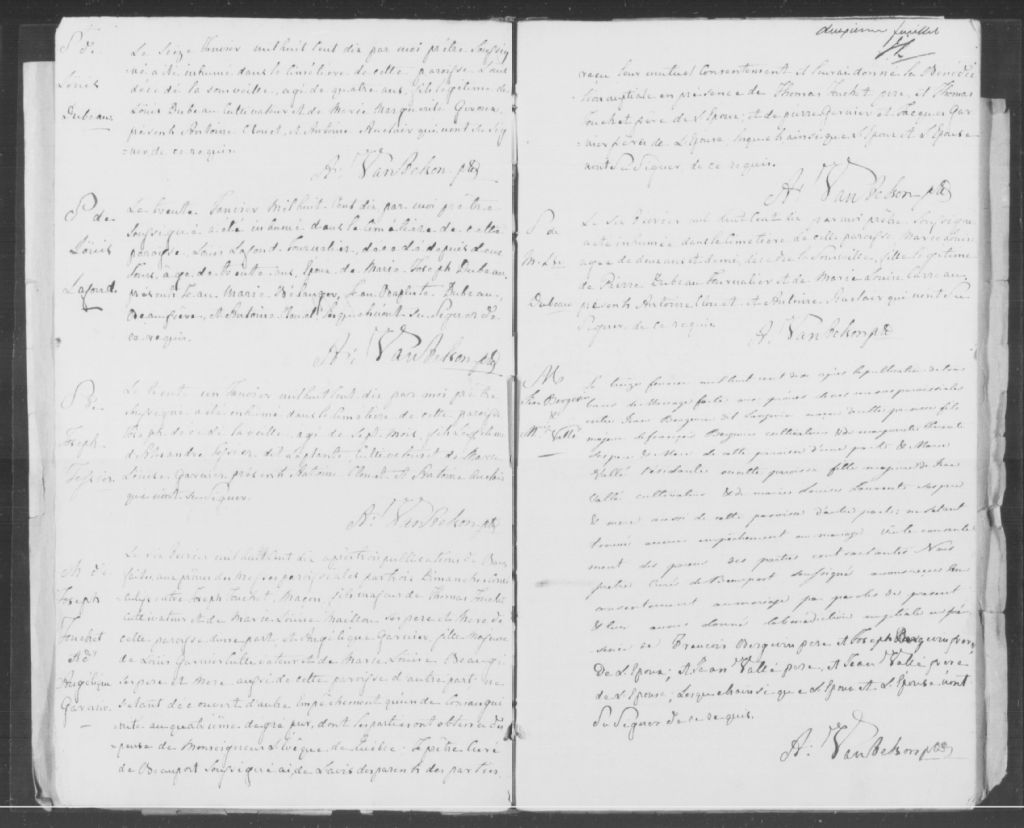 S de
Louis
Dubeau
Le Seize Janvier mil huit Cent dix par moi prêtre Soussig
-né a été inhumé dans le Cimétiere de cette paroisse Louis
décédé la sourveille, agé de quatre ans, fils légitime de
Louis Dubeau Cultivateur et de Marie Marguerite
présents Antoine Clouet, et Antoine Auclair qui n'ont su sig
-ner de ce requis.
A: VanBekom ptre
S de
Louis
Lafond
Le trente Janvier mil huit Cent dix par moi prêtre
Soussigné a été inhumé dans le Cimétiere de cette
paroisse, Louis Lafond Journalier, décédé depuis deux
Jours, agé de trente ans, Epoux de Marie Joseph Dubeau,
présents Jean Marie Bélanger, Jean Baptiste Dubeau
Beaufrere, et Antoine Clouet lesquels n'ont Su Signer de
ce requis.
A: VanBekom ptre
S de
Joseph
Tessier
Le trente un Janvier mil huit Cent dix par moi prêtre
Soussigné a été inhumé dans le Cimétiere de cette paroisse
Joseph décédé la veille, agé de Sept mois, fils Legitime
de Alexandre Tessier dit Laplante Cultivateur et de Marie
Louise Garnier présents Antoine Clouet et Antoine Auclair
qui n'ont su Signer.
A: VanBekom ptre
M de
Joseph
Touchet
& d'
Angélique
Garnier
Le Six fevrier mil huit Cent dix après trois publications de Bans
faites aux prônes des Messes paroissiales par trois Dimanches
entre Joseph Touchet Macon, fils majeur de Thomas Touchet
Cultivateur et de Marie Louise Maillou ses pere et Mere de
cette paroisse d'une part et Angélique Garnier, fille Majeure
de Louis Garnier Cultivateur et de Marie Louise
ses pere et Mere aussi de cette paroisse d'autre part ne
s'étant découvert d'autre Empéchement qu'un de Consangui
-nité au quatrième degré pur, dont les parties ont obtenu dis
-pense de Monseigneur L'évêque de Québec. Je prêtre Curé
de Beauport Soussigné ai de L'avis des parents des parties
deuxieme feuillet
recu leur mutuel Consentement et leur ai donné la Bénédic
-tion nuptiale en présence de Thomas Touchet pere, et Thomas
Touchet frere de L'Epoux, et de pierre Garnier et Jacques Gar
-nier freres de L'Epouse lesquels ainsi que L'Epoux et L'Epouse
n'ont Su Signer de ce requis.
A: VanBekom ptre
S de
M. Lse
Dubeau
Le Six fevrier mil huit Cent dix par moi prêtre Soussigné
a été inhumée dans le Cimetiere de cette paroisse Marie Louise
agée de deux ans et demi, décédée la Sourveille, fille légitime
de Pierre Dubeau Journalier et de Marie Louise
présents Antoine Clouet, et Antoine Auclair qui n'ont Su
Signer de ce requis
A: VanBekom ptre
M
Jean Bergevin
&
M. Vallé
Le treize fevrier mil huit cent dix après la publication de trois
bans de Mariage faite aux prônes des messes paroissiales
entre Jean Bergevin dit Langevin maçon de cette paroisse fils
majeur de françois Bergevin cultivateur & de marguerite Parent
ses pere & Mere de cette paroisse d'une part; & Marie
Vallé résidante en cette paroisse fille majeure de Jean
Vallé cultivateur & de marie Louise ses pere
& mere aussi de cette paroisse d'autre part; ne s'étant
trouvé aucun empêchement au mariage vû le consente
ment des parens des parties contractantes Nous
prêtre Curé de Beauport soussigné avons reçu leur
consentement au mariage par paroles de present
& leur avons donné la bénédiction nuptiale en pré
sence de Francois Bergevin pere et Joseph Bergevin frere
de L'Epoux; et Jean Vallé pere, et Jean Vallé frere
de L'Epouse; Lesquels ainsi que L'Epoux et L'Epouse n'ont
Su Signer de ce requis.
A: VanBekom ptre